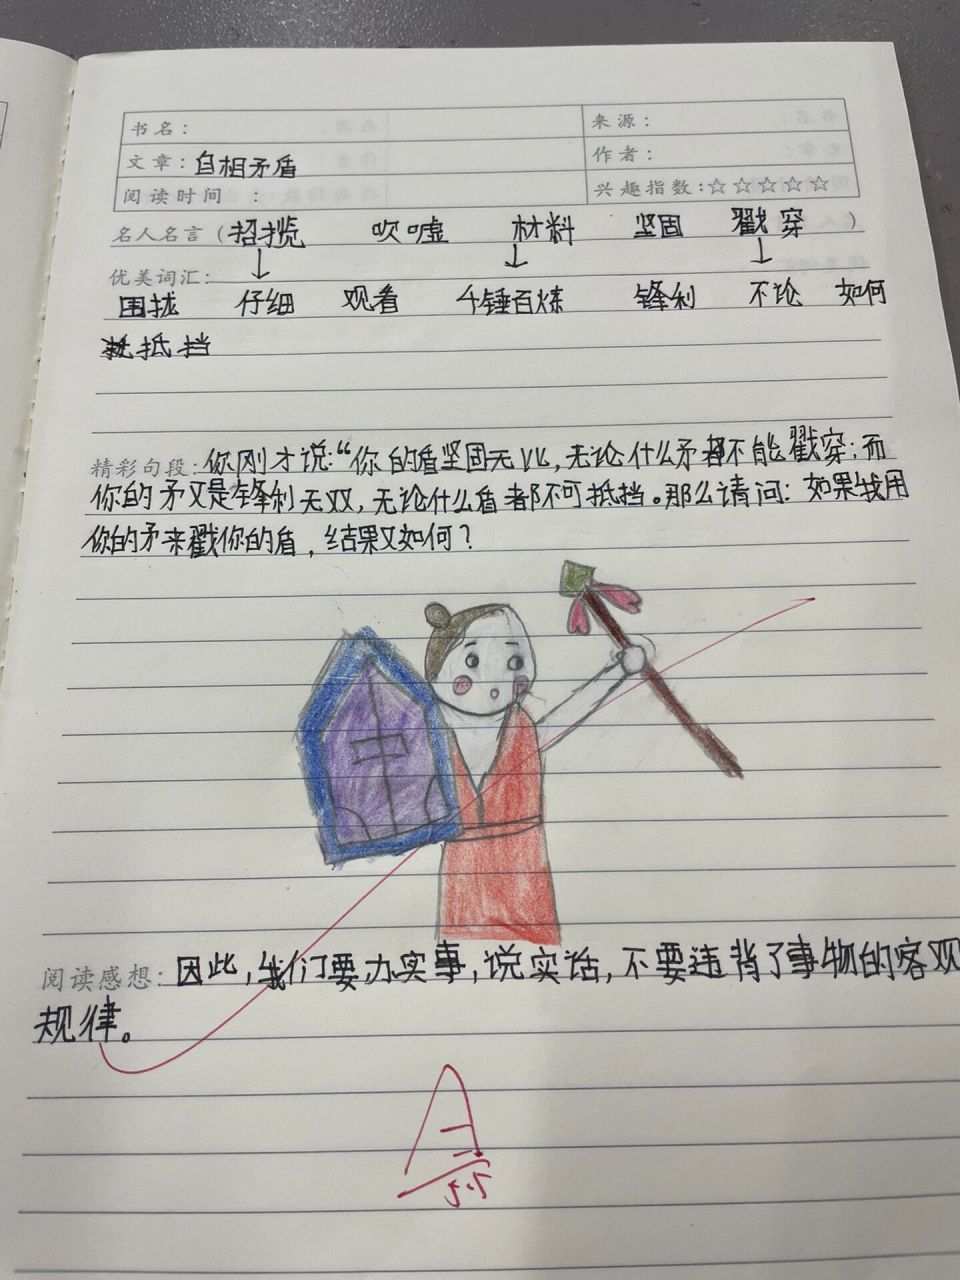 书名：
来源：
文章：自相矛盾
作者：
阅读时间 ：
兴趣指数：☆☆☆☆☆
名人名言（招揽 吹嘘 材料 坚固 戳穿 ）
优美词汇：
围拢 仔细 观看 千锤百炼 锋利 不论 如何
抵挡
精彩句段：你刚才说：“你的盾坚固无比，无论什么矛都不能戳穿；而
你的矛又是锋利无双，无论什么盾都不可抵挡。那么请问：如果我用
你的矛来戳你的盾，结果又如何？
阅读感想：因此，我们要办实事，说实话，不要违背了事物的客观
规律。
5.5